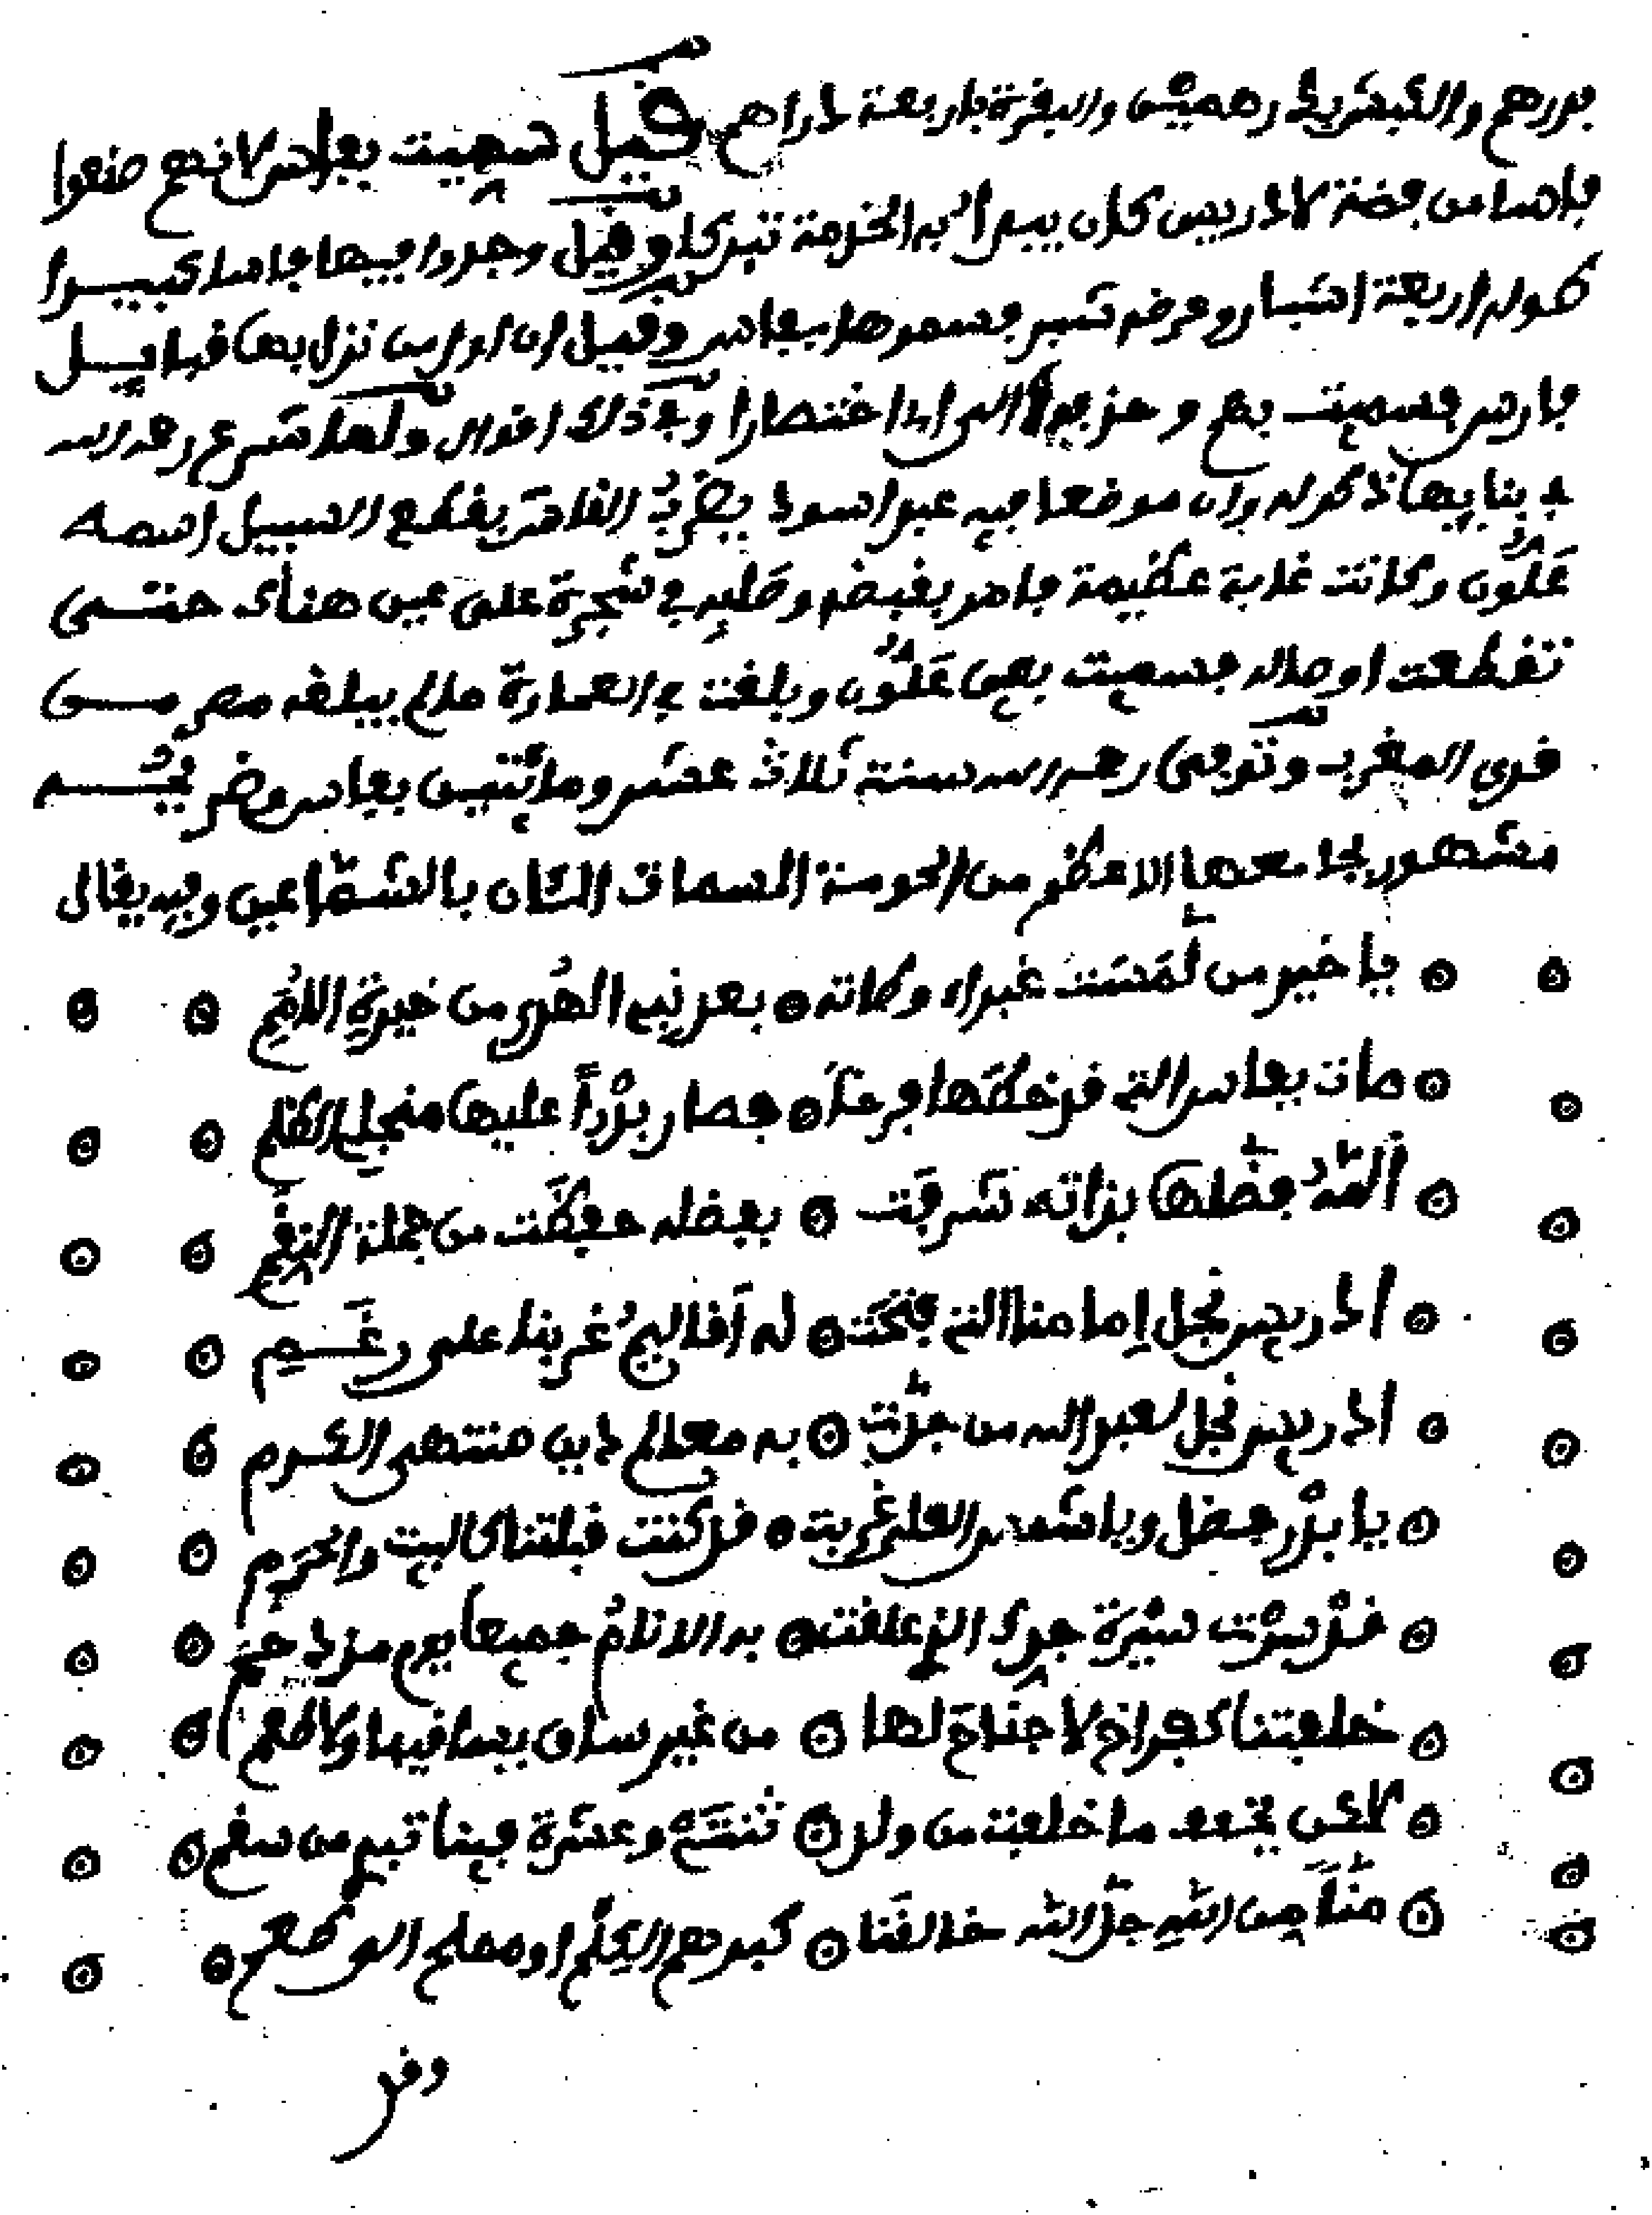 بدرهم والكبش بدرهمين والبقرة باربعة دراهم قيل سميت بفاس لانهم صنعوا
فاسا من فضة لادريس كان يبدأ به الخدمة تبركا وقيل وجدوا فيها فاسا كبيرا
طوله اربعة اشبار وعرضه شبر فسموها بفاس وقيل ان ادريس نزل بها قبايل
فارس فسميت بهم وحذفوا الراء اختصارا وفي ذلك اقوال ولما شرع رحمه الله
في بنايها ذكر له بان موضعا فيه عبد اسود يضرّ بالناس يقطع السبيل اسمه
عَلُّون وكانت غابة عظيمة فامر بقبضه وصلبه في شجرة على عين هناك حتى
تقطعت اوصاله فسميت بعين عَلُّون وبلغت في العمارة ما لم يبلغه مصر من
قرى المغرب وتوفي رحمه الله سنة ثلاث عشر ومائتين بفاس وضريحُه
مشهور بجامعها الاعظم من الحومة المسمات الان بالشمّاعين وفيه يقال
يا خير من لمَسَت غبراء وكاته بعد نبي الهُدى من خيرةِ الاممِ
مات بفاس التي قد خطّها فرحاً فصار بدْراً عليها منجلي الظلم
اللّهُ فضّلها بذاته شرفت بفضله حفظَت من جملة النقم
ادريس نجل اِمامنا التي فتحَت له اَقاليمُ غربنا على رغَــم
ادريس نجل لعبد الله من جلّت به معالم دين منتهى الكرم
يا بدْر فضل ويا شمس العلى غربت قد كنت قبلتنا كالبيت والحرَم
قدْ سرْت سيْرَة جدك الذي علقت به الانامُ جميعا يوم مزدحم
خلفتنا كفراخ لا جناح لها من غير ساق بساقيها ولا طعم
لاكن يخفف ما خلفت من ولد ثنتَيْ وعشرة فينا تبر من سقم
منّاً مِن اللّهِ جلّ اللّه خالقنا كبدرهم
وقد